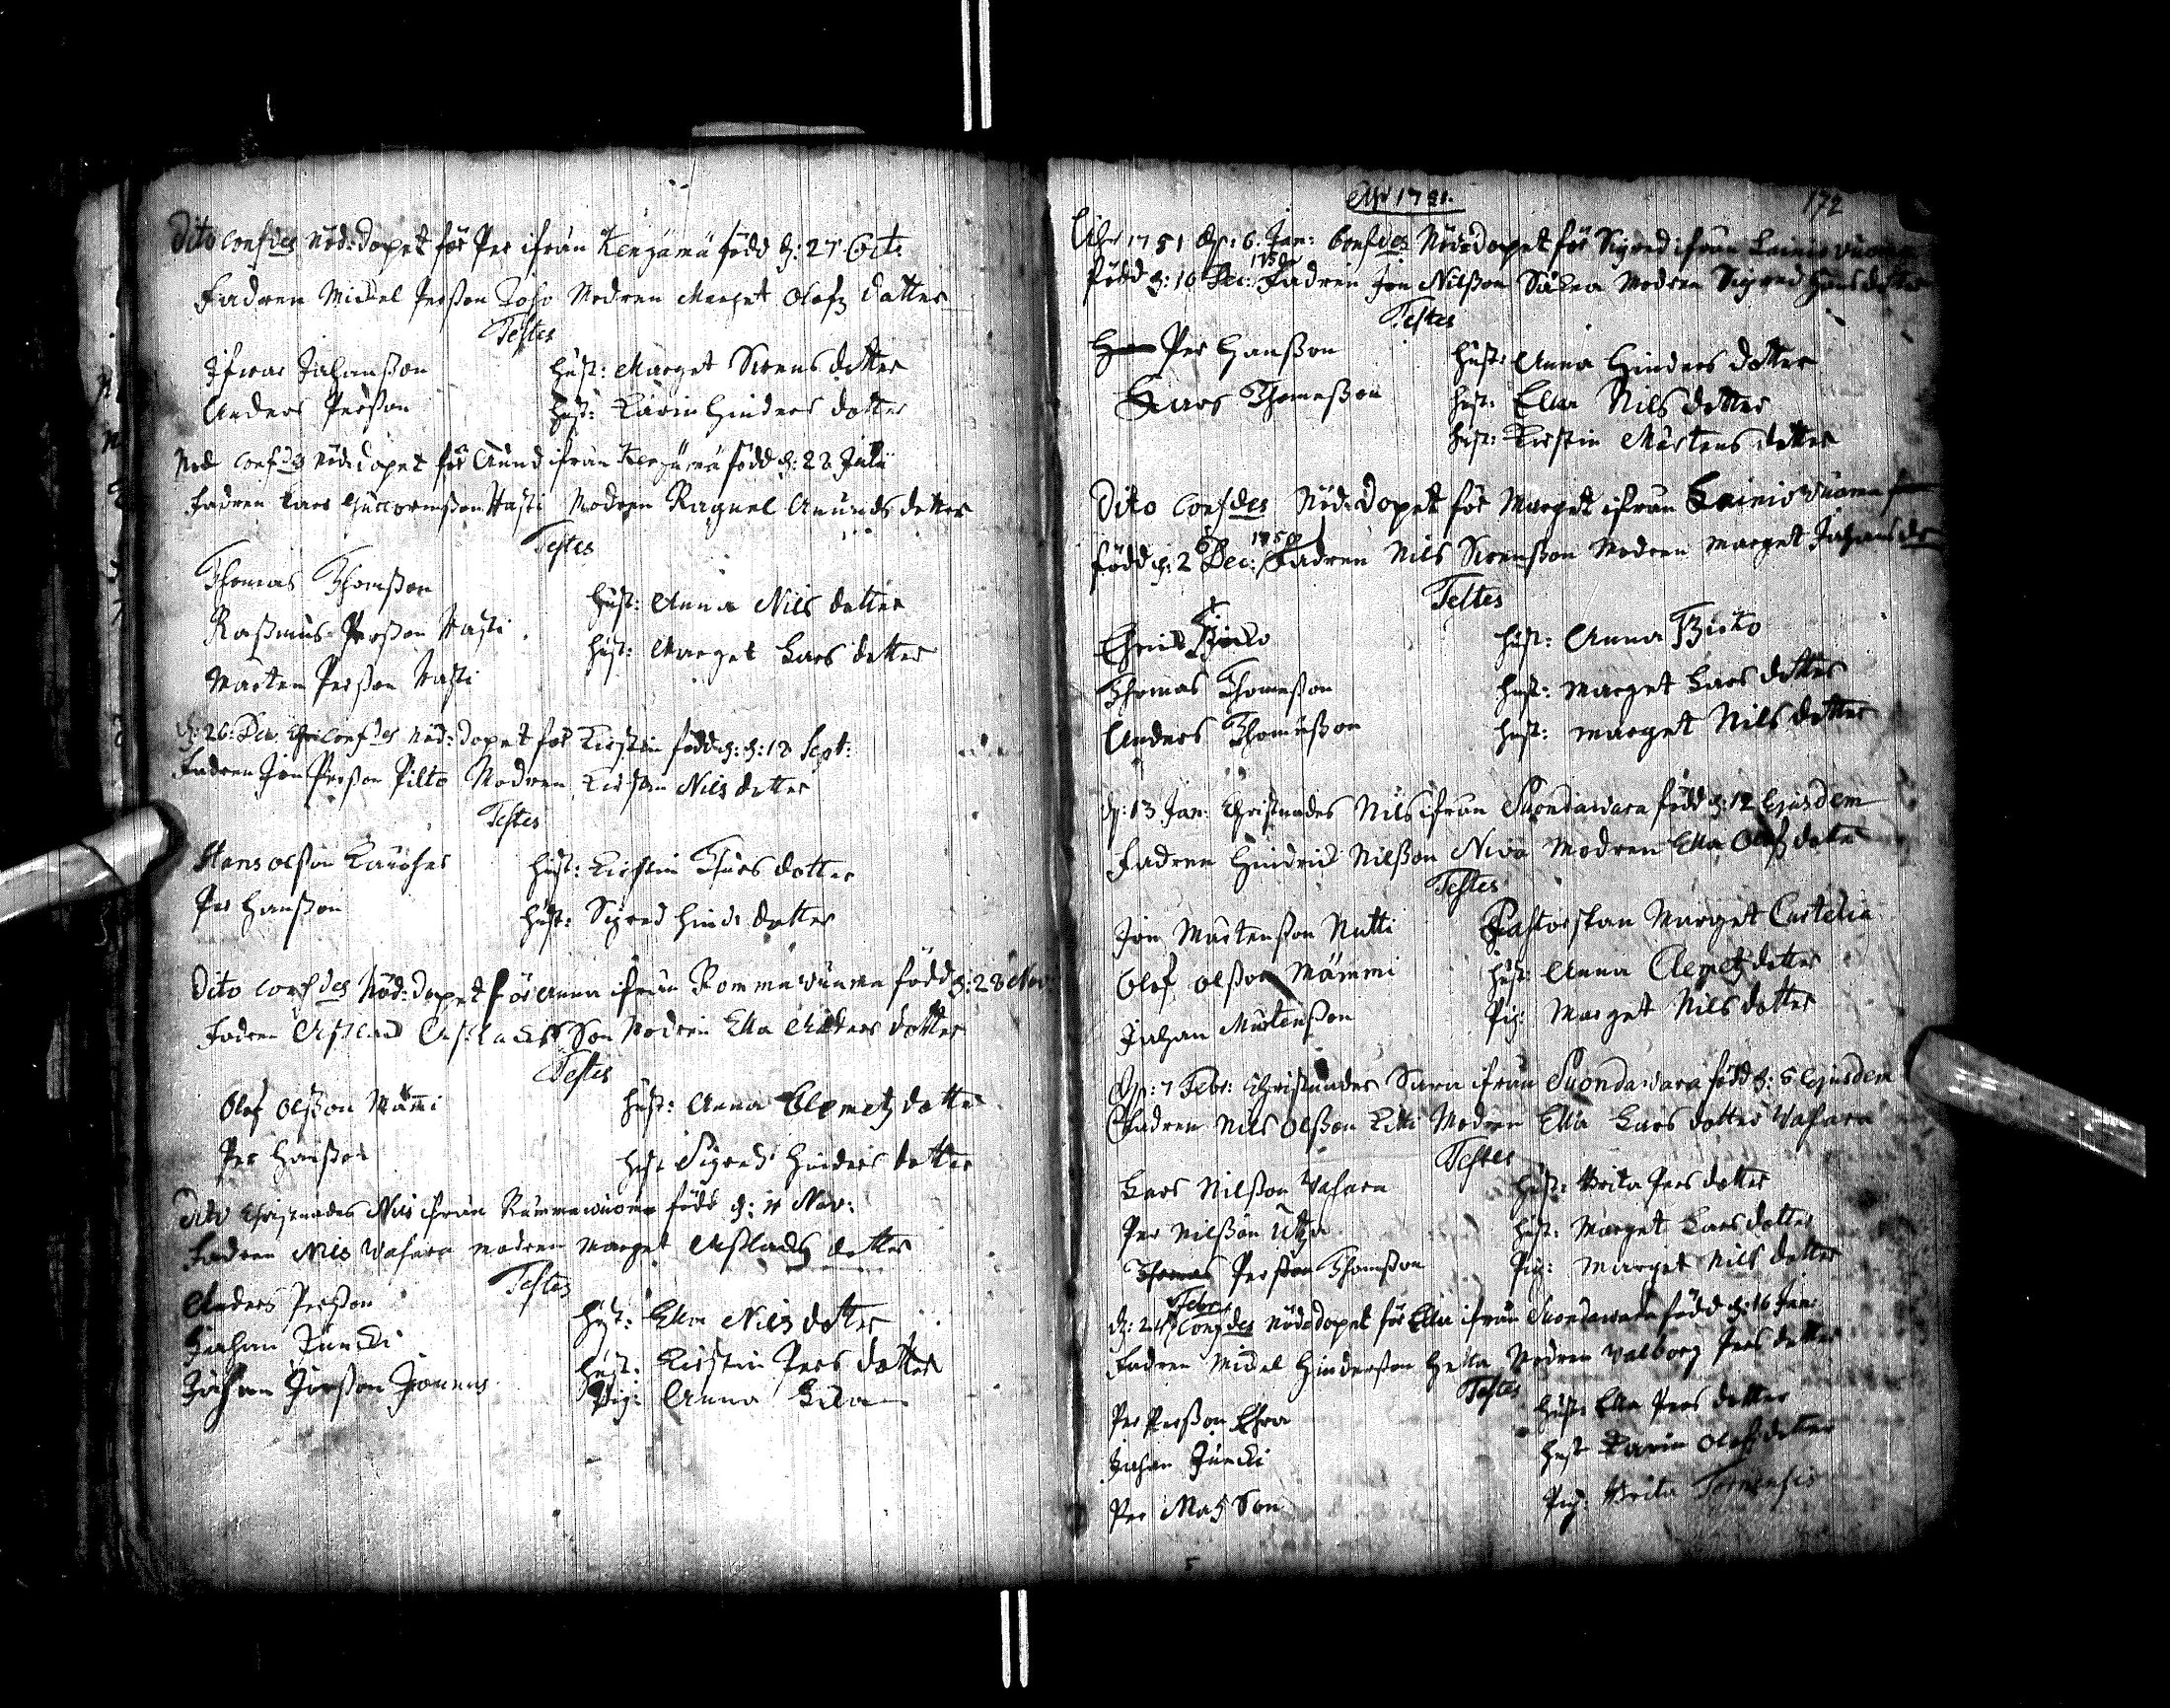 Dito Conf:des Nöd:dopet för Per ifrån Kengämä född d: 27 Oct:
Fadren Mickel Perßon Modren Marget Olofz dotter
Testes
Ifwar Johanßon
Hust: Marget Swens dotter
Anders Perßon
Hust: Karin Hinders dotter
Conf:des Nöd:dopet för Anund ifrån Kengämä född d: 28 Julii
Fadren Lars Guttormßon Nasti Modren Raguel Anunds dotter
Testes
Thomas Thomßon
Hust: Anna Nils dotter
Raßmus Perßon Nasti
Hust: Marget Lars dotter
Marten Perßon Nasti
d: 26: Dec: Conf:des Nöd:dopet för Kirstin född d: 18 Sept:
Fadren Jon Perßon Pilto Modren Kirstin Nils dotter
Testes
Hans Olßon
Hust: Kirstin Thurs dotter
Per Hanßon
Hust: Sigred Hinds dotter
Dito Conf:des Nöd:dopet för Anna ifrån Rommawuoma född d: 28 Nov:
Fadren Aslack Aslackß Son Modren Ella Anders dotter
Testes
Olof Olßon Mämmi
Hust: Anna Clemetz dotter
Per Hanßon
Hust Sigred Hinders dotter
Dito Christnades Nils ifrån Rommawuoma född d: 11 Nov:
Fadren Nils Wasara modren Marget Aslacks dotter
Testes
Anders Perßon
Hust: Ella Nils dotter
Johan Juncki
Hust: Kirstin Pers dotter
Johan Jonßon
Pig: Anna
Ahr 1751.
172
Ahr 1751 d: 6. Jan: Conf:des Nöd:dopet för Sigred ifrån Lainio Vuoma
född d: 10 Dec: 1750 Fadren Jon Nilßon Modren Sigred Hans dotter
Testes
Per Hanßon
Hust: Anna Hinders dotter
Lars Thomeßon
Hust: Ella Nils dotter
Hust: Kirstin Mårtens dotter
Dito Conf:des Nöd:dopet för Marget ifrån Lainio Vuoma
född d: 2 Dec: 1750 Fadren Nils Swenßon Modren Marget Johans dr
Testes
Hust: Anna
Thomas Thomeßon
Hust: Marget Lars dotter
Anders Thomeßon
Hust: Marget Nils dotter
d: 13 Jan: Christnades Nils ifrån Suondawara född d: 12 Ejusdem
Fadren Hindrick Nilßon Niva Modren Ella Olofs dotter
Testes
Jon Mårtenßon Nutti
Pastorskan Marget Curtelia
Olof Olßon Mämmi
Hust: Anna Clemetz dotter
Johan Mårtenßon
Pig: Marget Nils dotter
d: 7 Febr: Christnades Sara ifrån Suondawara född d: 5 Ejusdem
Fadren Nils Olßon Kitti Modren Ella Lars dotter Wasara
Testes
Lars Nilßon Wasara
Hust: Brita Pers dotter
Per Nilßon Utzi
Hust: Marget Lars dotter
Per Thomßon
Pig: Marget Nils dotter
d: 24 Febr: Conf:des Nöd:dopet för Ella ifrån Suondawara född d: 16 Jan:
Fadren Mickel Hinderßon Hetta Modren Walborg Pers dotter
Testes
Per Perßon
Hust: Ella Pers dotter
Johan Juncki
Hust Karin Olofs dotter
Per Matz Son
Pig: Brita Tornensis